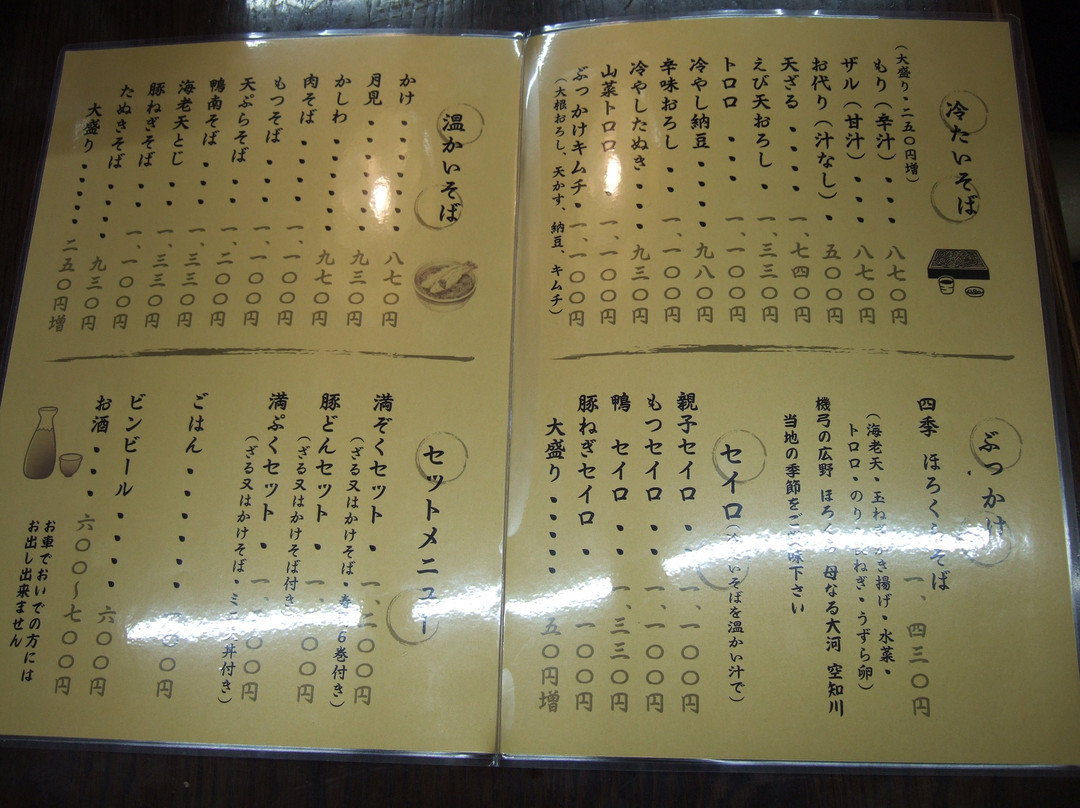 冷たいそば
(大盛り・二五〇円増)
もり(辛汁)・・・八七〇円
ザル(甘汁)・・・八七〇円
お代り(汁なし)・五〇〇円
天ざる・・・・一、七四〇円
えび天おろし・一、三三〇円
トロロ・・・一、一〇〇円
冷やし納豆・・・九八〇円
辛味おろし・・一、一〇〇円
冷やしたぬき・・・九三〇円
山菜トロロ・・一、一〇〇円
ぶっかけキムチ・一、一〇〇円
(大根おろし、天かす、納豆、キムチ)
ぶっかけ
四季 ほろくそば 一、四三〇円
(海老天・玉ねぎかき揚げ・水菜・
トロロ・のり・ねぎ・うずら卵)
機弓の広野 ほろくそ 母なる大河 空知川
当地の季節をご賞味下さい
セイロ(冷たいそばを温かい汁で)
親子セイロ・・一、一〇〇円
もつセイロ・・一、一〇〇円
鴨 セイロ・・一、三三〇円
豚ねぎセイロ・一、一〇〇円
大盛り・・・・・・五〇円増
温かいそば
かけ・・・・・・・八七〇円
月見・・・・・・・九三〇円
かしわ・・・・・・九七〇円
肉そば・・・・一、一〇〇円
もつそば・・・一、一〇〇円
天ぷらそば・・一、二〇〇円
鴨南そば・・・一、三三〇円
海老天とじ・・一、三三〇円
豚ねぎそば・・一、一〇〇円
たぬきそば・・・・九三〇円
大盛り・・・・・・二五〇円増
セットメニュー
満ぞくセット・一、二〇〇円
(ざる又はかけそば・寿司6巻付き)
豚どんセット・一、〇〇円
(ざる又はかけそば付き)
満ぷくセット・一、〇〇円
(ざる又はかけそば・ミニ天丼付き)
ごはん・・・・・〇〇円
ビンビール・・・・六〇〇円
お酒・・・六〇〇～七〇〇円
お車でおいでの方には
お出し出来ません